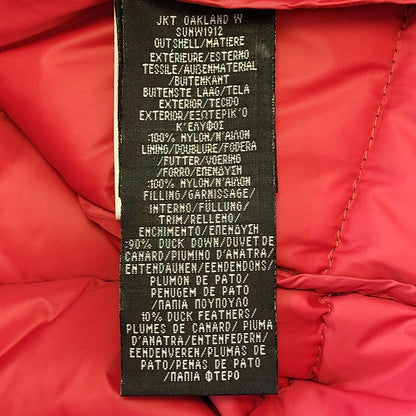 JKT OAKLAND W
SUNW1912
OUTSHELL/MATIERE
EXTÉRIEURE/ESTERNO
TESSILE/AUßENMATERIAL
/BUITENKANT
BUITENSTE LAAG/TELA
EXTERIOR/TECIDO
EXTERIOR/ΕΞΩΤΕΡΙΚ'Ο
Κ'ΕΛΥΦΟΣ
:100% NYLON/Ν'ΑΙΛΟΝ
LINING/DOUBLURE/FODERA
/FUTTER/VOERING
/FORRO/ΕΠΕΝΔΥΣΗ
:100% NYLON/Ν'ΑΙΛΟΝ
FILLING/GARNISSAGE/
INTERNO/FÜLLUNG/
TRIM/RELLENO/
ENCHIMENTO/ΕΠΕΝΔΥΣΗ
:90% DUCK DOWN/DUVET DE
CANARD/PIUMINO D'ANATRA/
ENTENDAUNEN/EENDENDONS/
PLUMON DE PATO/
PENUGEM DE PATO
/ΠΑΠΙΑ ΠΟΥΠΟΥΛΟ
10% DUCK FEATHERS/
PLUMES DE CANARD/ PIUMA
D'ANATRA/ENTENFEDERN/
EENDENVEREN/PLUMAS DE
PATO/PENAS DE PATO
/ΠΑΠΙΑ ΦΤΕΡΟ